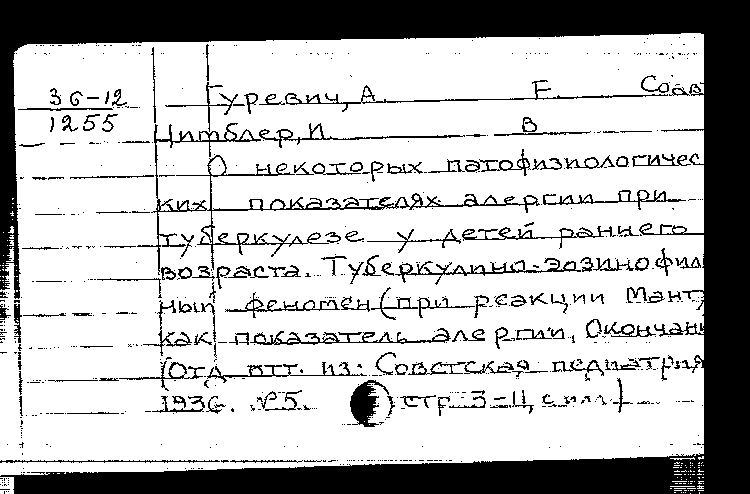 36-12
1255
Гуревич, А. Е. Соав
Цимблер, И. В
О некоторых патофизиологичес
ких показателях алергии при
туберкулезе у детей раннего
возраста. Туберкулино-эозинофил
ный феномен (при реакции Мант
как показатель алергии, Окончан
(Отд. отт. из: Советская педиатрия
1936. №5. стр. 3-11, с илл.)